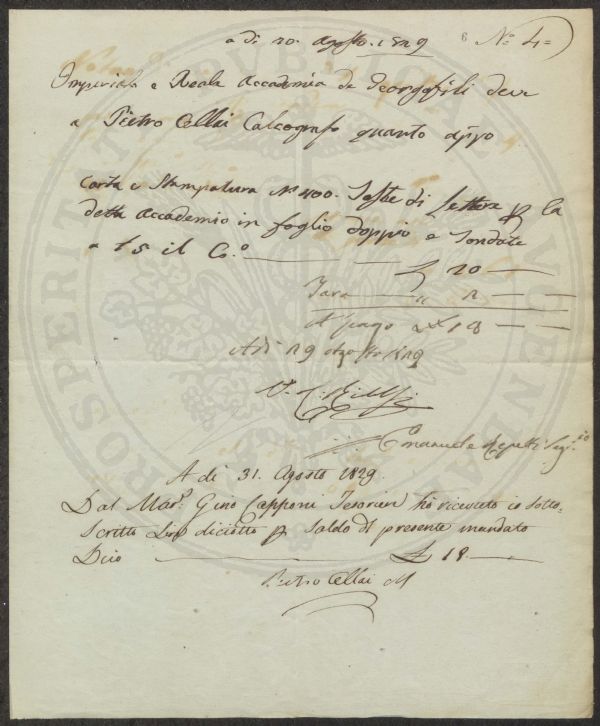 a di 20. Agosto. 1829 N.º 4=
Imperiale e Reale Accademia de Georgofili deve
a Pietro Cellai Calcografo quanto appo
Carta e Stampatura Nº 400. Teste di Lettere p la
detta Accademia in foglio doppio e Tondate
a £ 5 il Cº. £ 20
Tara " 2
Si pago £ 18
A di 29 Agosto 1829
V.
Emanuele Repetti Seg.rio
A di 31. Agosto 1829.
Dal Mar.e Gino Capponi Tesoriere ho ricevuto io Sotto=
Scritto Lire diciotto p Saldo di presente mandato
Dico £ 18.
Pietro Cellai M
PROSPERITATI PUBLICAE AUGENDAE